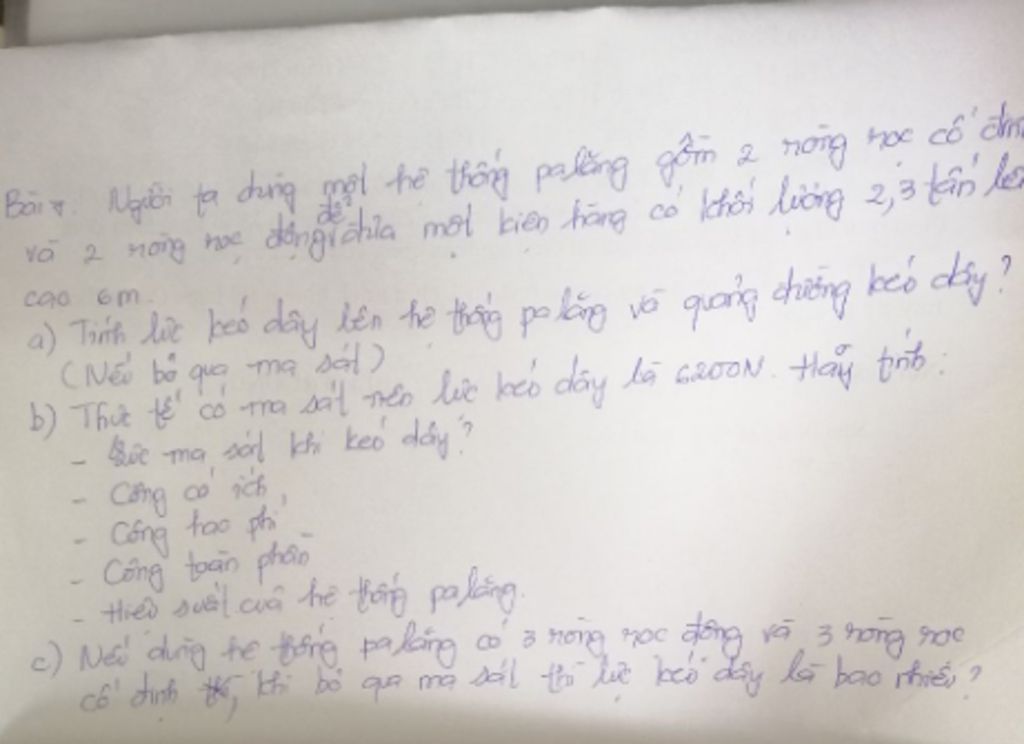 Bài 7. Người ta dùng một hệ thống palăng gồm 2 ròng rọc cố định
và 2 ròng rọc động để đưa một kiện hàng có khối lượng 2,3 tấn lên
cao 6m.
a) Tính lực kéo dây lên hệ thống palăng và quãng đường kéo dây?
(Nếu bỏ qua ma sát)
b) Thực tế có ma sát nên lực kéo dây là 6200N. Hãy tính:
- Lực ma sát khi kéo dây?
- Công có ích,
- Công hao phí
- Công toàn phần
- Hiệu suất của hệ thống palăng.
c) Nếu dùng hệ thống palăng có 3 ròng rọc động và 3 ròng rọc
cố định thì, khi bỏ qua ma sát thì lực kéo dây là bao nhiêu?